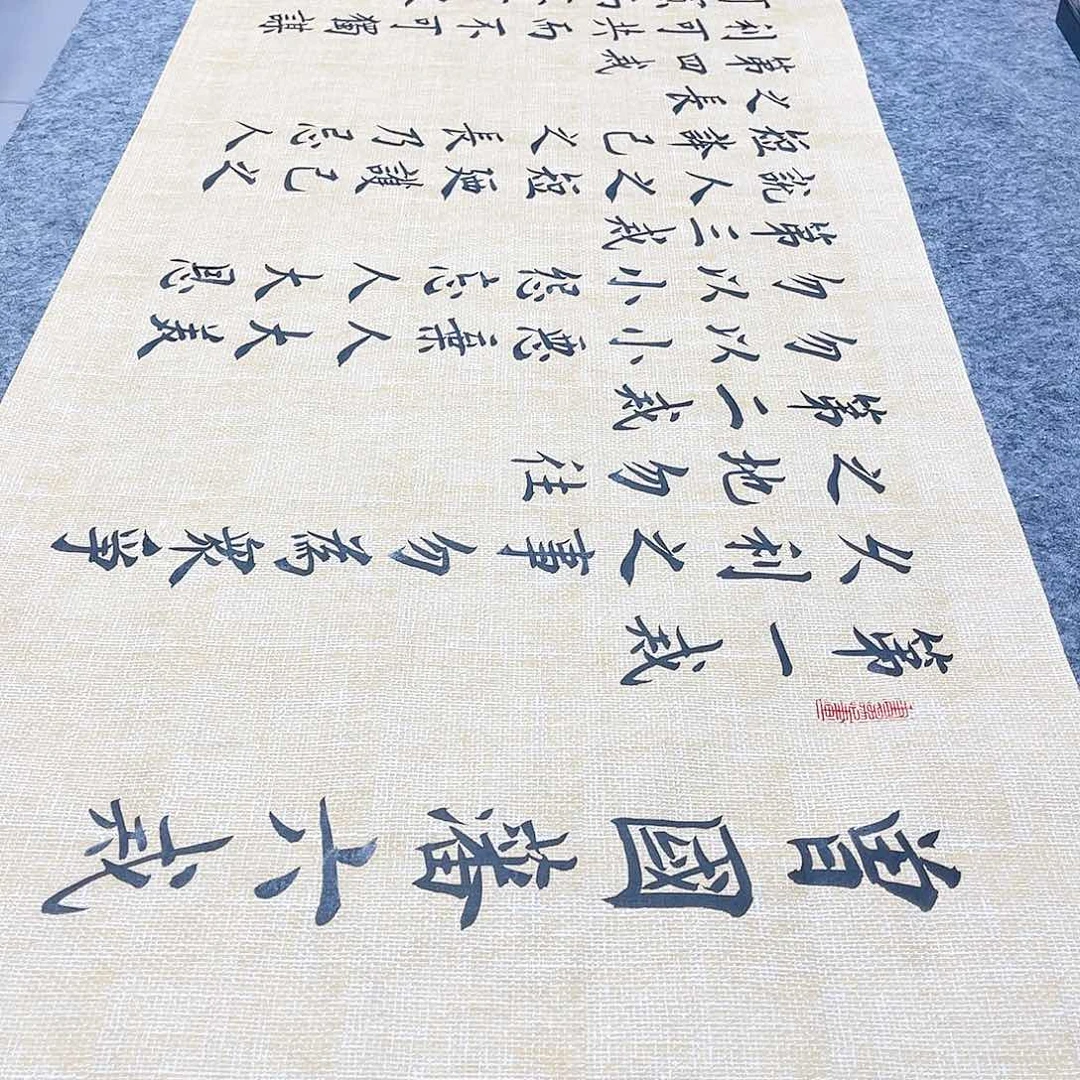 曾國藩六戒
第一戒
久利之事勿為眾爭
之地勿往
第二戒
勿以小惡棄人大美
勿以小怨忘人大恩
第三戒
說人之短乃護己之
短誇己之長乃忌人
之長
第四戒
利可共而不可獨謀